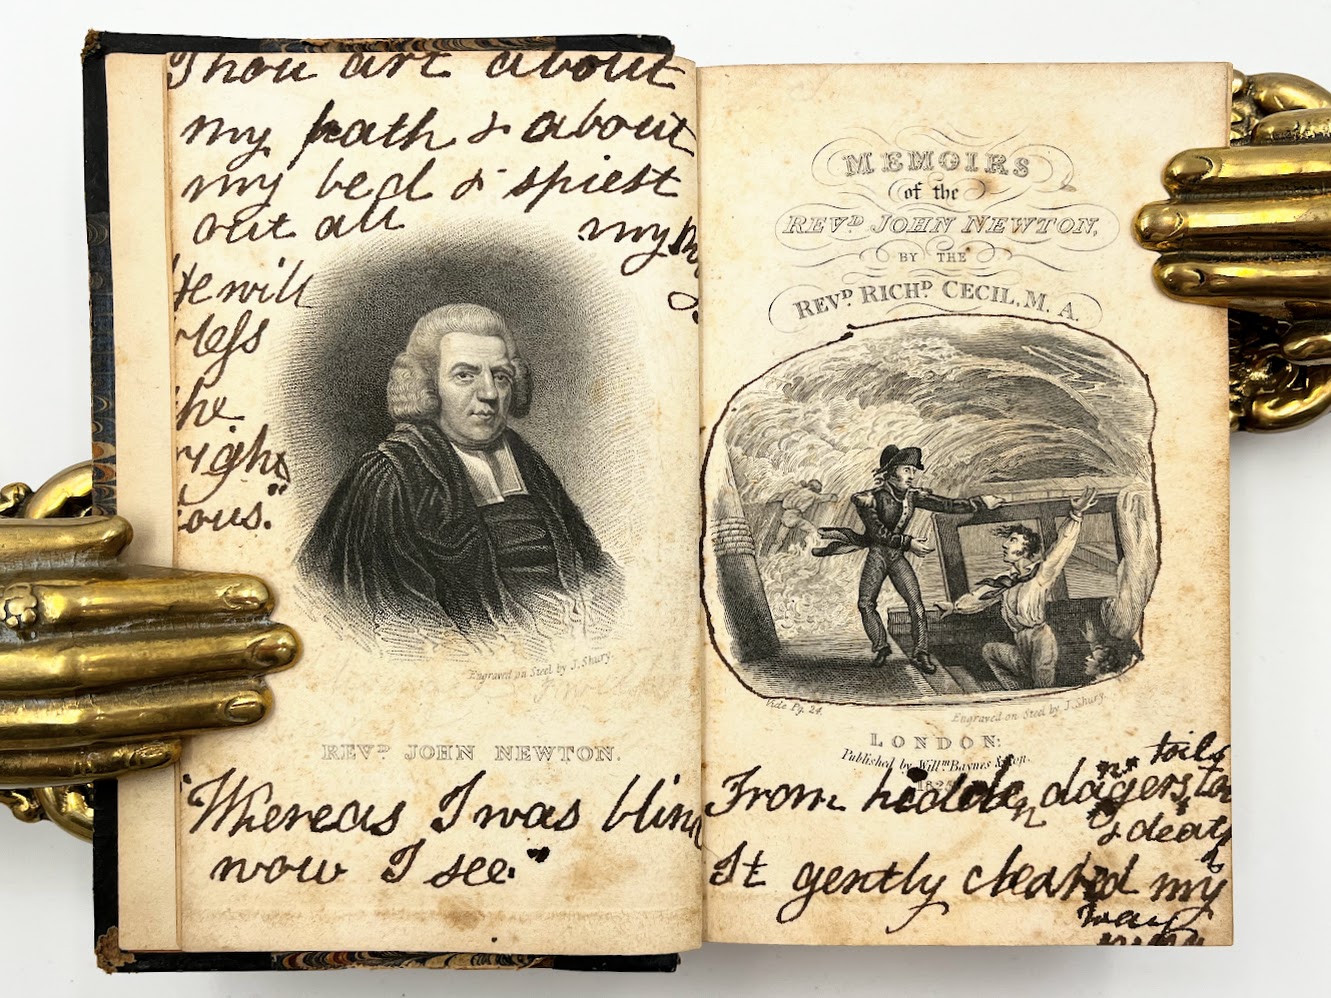 Thou art about
my path & about
my bed & spiest
out all my
He will
bless
the
right
eous."
Engraved on Steel by J. Shury.
REVD. JOHN NEWTON.
"Whereas I was blind
now I see."
MEMOIRS
of the
REVD. JOHN NEWTON,
BY THE
REVD. RICHD. CECIL, M. A.
Vide Pg. 24.
Engraved on Steel by J. Shury.
LONDON:
Published by Willm. Baynes & Son.
From hidden dagers toils
& death
It gently cleared my
way